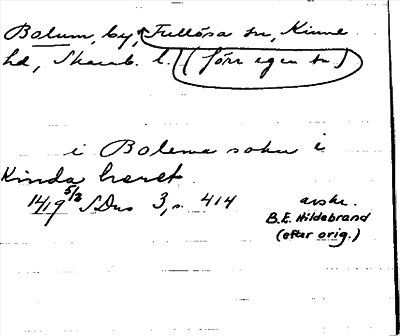 Bolum, by, Fullösa sn, Kinne
hd, Skarab. l. (förr egen sn)
i Bolema sokn i
Kinda hæret
1419 5/2 SDns 3, s. 414
avskr.
B.E. Hildebrand
(efter orig.)